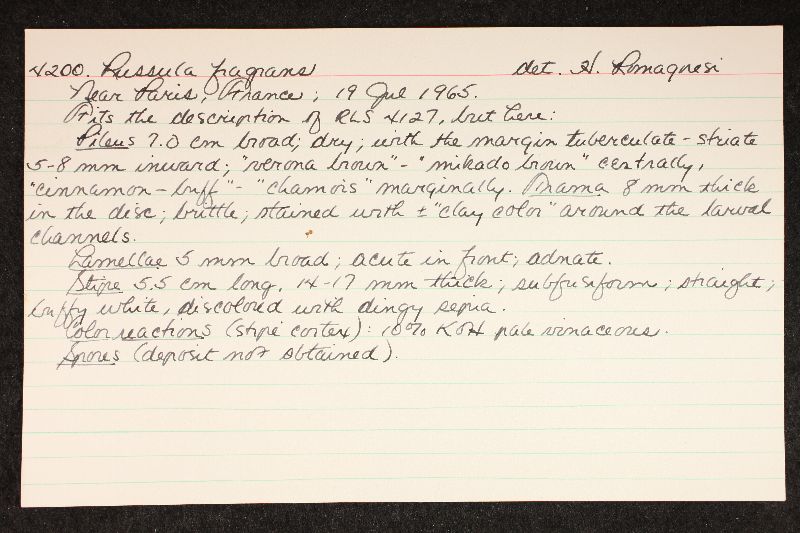 4200. Russula fragrans det. H. Romagnesi
Near Paris, France; 19 Jul 1965.
Fits the description of RLS 4127, but here:
Pileus 7.0 cm broad; dry; with the margin tuberculate-striate
5-8 mm inward; "verona brown"-"mikado brown" centrally,
"cinnamon-buff"-"chamois" marginally. Trama 8 mm thick
in the disc; brittle; stained with ± "clay color" around the larval
channels.
Lamellae 5 mm broad; acute in front; adnate.
Stipe 5.5 cm long, 14-17 mm thick; subfusiform; straight;
buffy white, discolored with dingy sepia.
Color reactions (stipe cortex): 10% KOH pale vinaceous.
Spores (deposit not obtained).